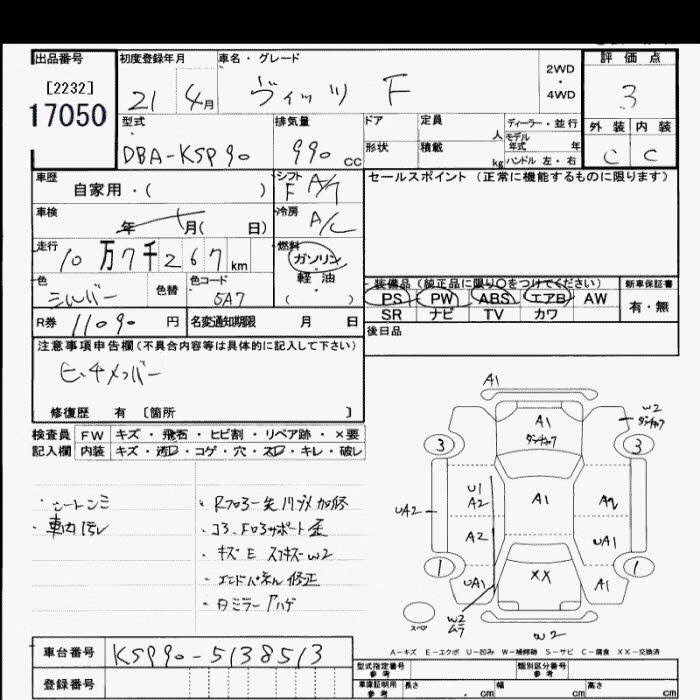 出品番号 初度登録年月 車名・グレード 2WD・4WD 評価点
[2232]
17050 21 4月 ヴィッツ F 3
型式 排気量 ドア 定員 人 ディーラー・並行 モデル年式 年 外装 内装
DBA-KSP90 990 CC 形状 積載 kg ハンドル 左・右 C C
車歴 自家用・( ) シフト F A/T セールスポイント(正常に機能するものに限ります)
車検 年 月( 日) 冷房 A/C
走行 10万7千267km 燃料 ガソリン・軽油 ( )
色 シルバー 色替 色コード 5A7
装備品(純正品に限り○をつけてください) 新車保証書
PS PW ABS エアB AW 有・無
SR ナビ TV カワ
R券 11090円 名変通知期限 月 日 後日品
注意事項申告欄(不具合内容等は具体的に記入して下さい)
修復歴 有 〔箇所 〕
検査員 FW キズ・飛石・ヒビ割・リペア跡・×要
記入欄 内装 キズ・・コゲ・穴・・キレ・破レ
・シートシミ
・車内汚レ
キズE スリキズW2
・エンドパネル修正
A1
W2
A1
3 3
U1
A2 A1 A2
UA2
A2 UA1
1 1
UA1 XX A1
W2
スペア
W2
A-キズ E-エクボ U-凹み W-補修跡 S-サビ C-腐食 XX-交換済
車台番号 KSP90-5138513
登録番号
型式指定番号 参考 類別区分番号 参考
車庫証明用 参考 長さ . cm 幅 cm 高さ cm